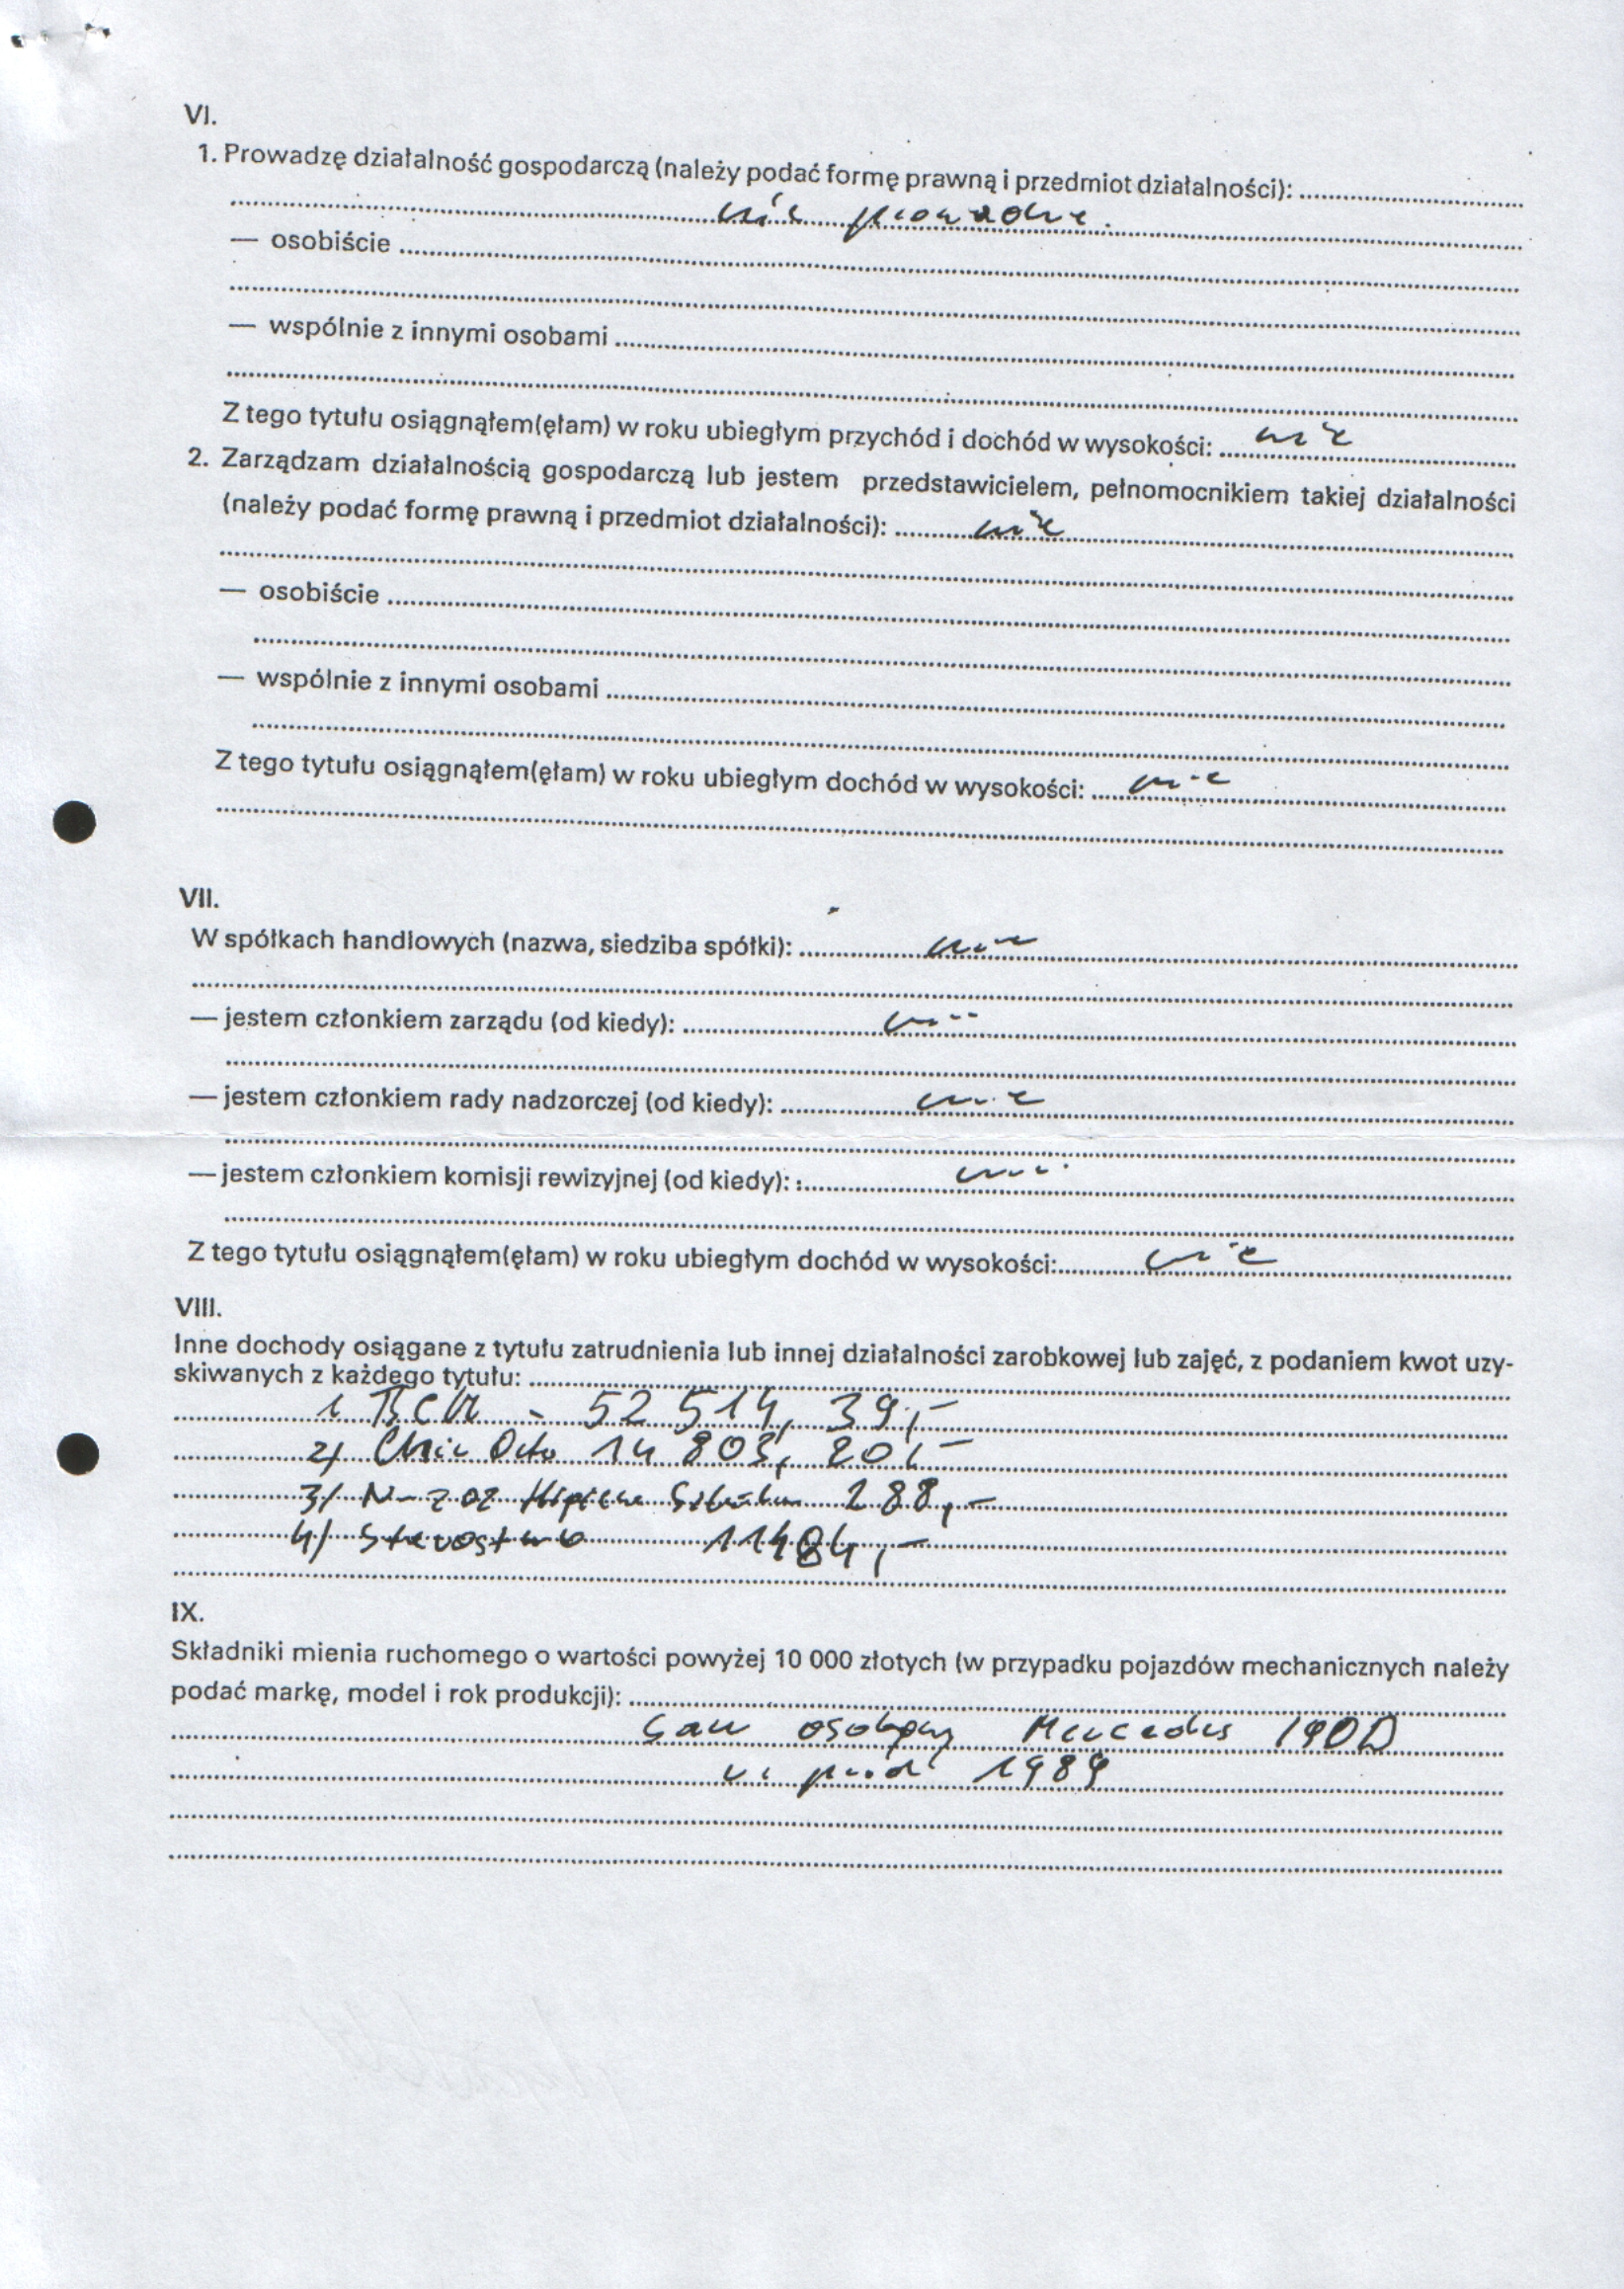 VI.
1. Prowadzę działalność gospodarczą (należy podać formę prawną i przedmiot działalności):
nie prowadzę.
— osobiście
— wspólnie z innymi osobami
Z tego tytułu osiągnąłem(ęłam) w roku ubiegłym przychód i dochód w wysokości: nie
2. Zarządzam działalnością gospodarczą lub jestem przedstawicielem, pełnomocnikiem takiej działalności
(należy podać formę prawną i przedmiot działalności): nie
— osobiście
— wspólnie z innymi osobami
Z tego tytułu osiągnąłem(ęłam) w roku ubiegłym dochód w wysokości: nie
VII.
W spółkach handlowych (nazwa, siedziba spółki): nie
— jestem członkiem zarządu (od kiedy): nie
— jestem członkiem rady nadzorczej (od kiedy): nie
— jestem członkiem komisji rewizyjnej (od kiedy): nie
Z tego tytułu osiągnąłem(ęłam) w roku ubiegłym dochód w wysokości: nie
VIII.
Inne dochody osiągane z tytułu zatrudnienia lub innej działalności zarobkowej lub zajęć, z podaniem kwot uzy-
skiwanych z każdego tytułu:
1 - 52 514, 39,-
2/ 14 803, 20,-
3/ 288,-
4/ Starostwo 11484,-
IX.
Składniki mienia ruchomego o wartości powyżej 10 000 złotych (w przypadku pojazdów mechanicznych należy
podać markę, model i rok produkcji):
Sam osobowy Mercedes 190D
prod 1989